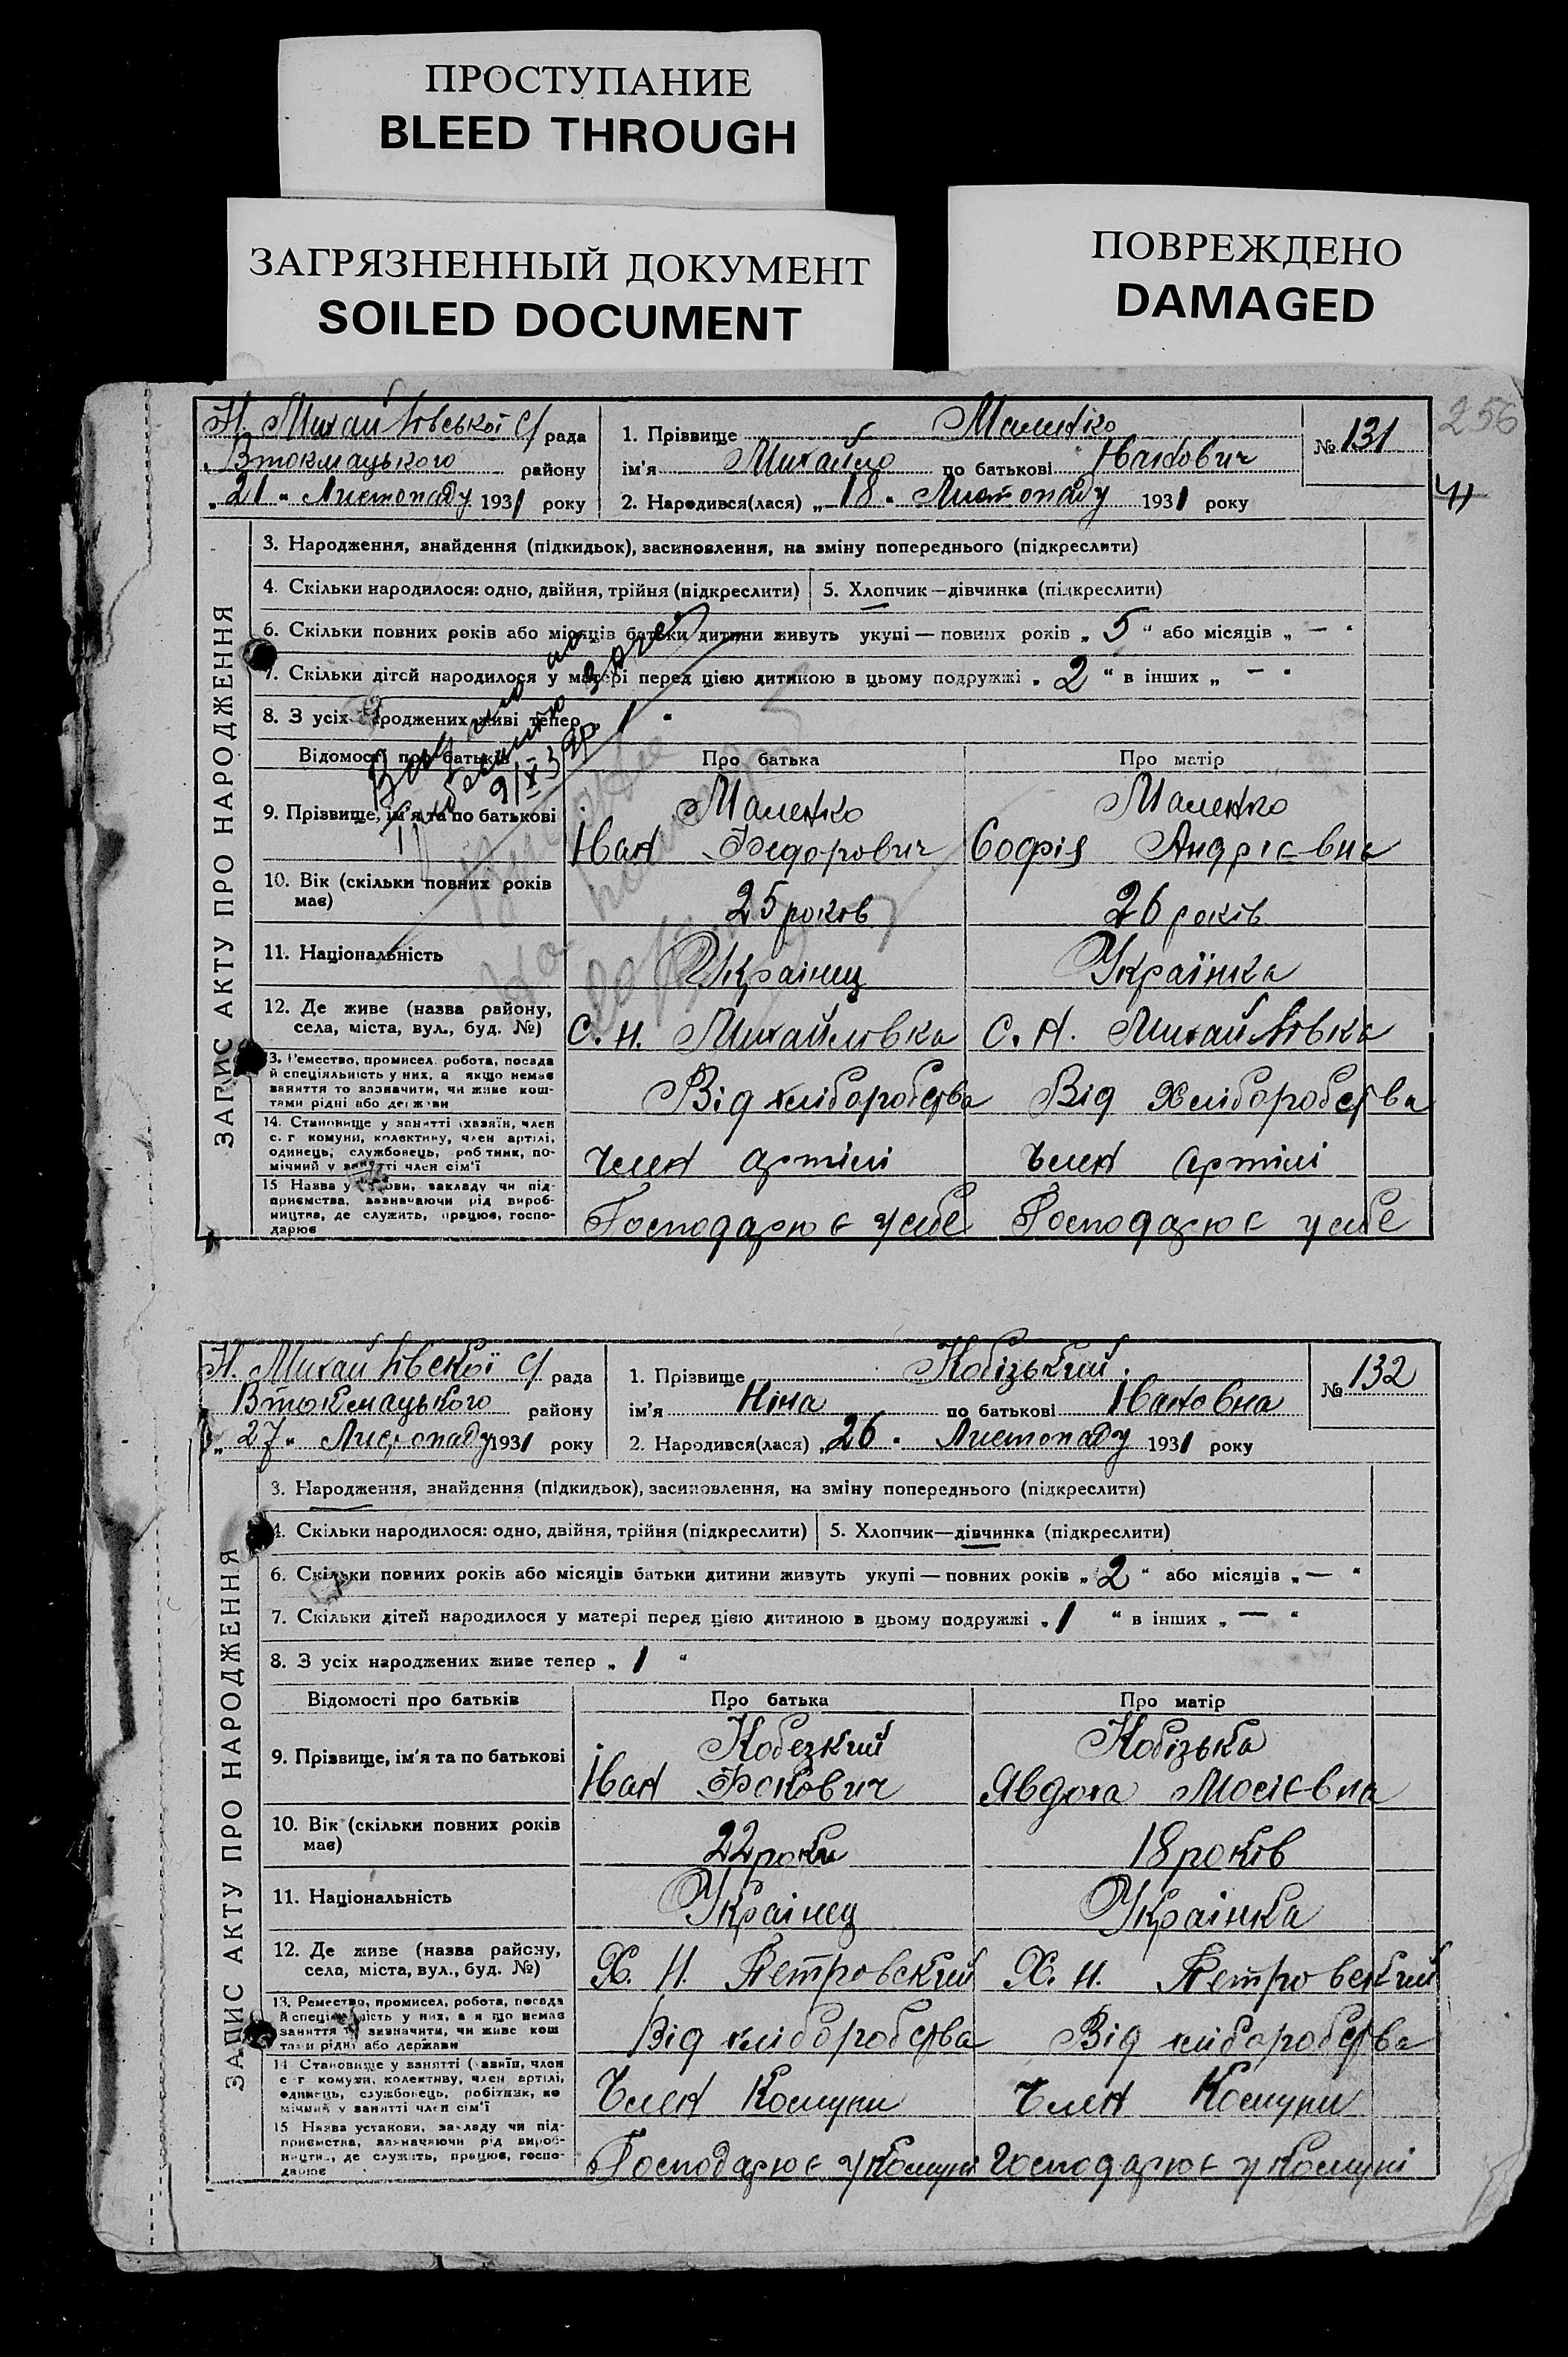 ПРОСТУПАНИЕ
BLEED THROUGH
ЗАГРЯЗНЕННЫЙ ДОКУМЕНТ
SOILED DOCUMENT
ПОВРЕЖДЕНО
DAMAGED
256
Н. Михайловської с/ рада
Втокмацького району
„21“ Листопаду 1931 року
1. Прізвище Маленко
ім'я Михайло по батькові Іванович
№ 131
2. Народився(лася) „18“ Листопаду 1931 року
ЗАПИС АКТУ ПРО НАРОДЖЕННЯ
3. Народження, знайдення (підкидьок), засиновлення, на зміну попереднього (підкреслити)
4. Скільки народилося: одно, двійня, трійня (підкреслити) 5. Хлопчик—дівчинка (підкреслити)
6. Скільки повних років або місяців батьки дитини живуть укупі — повних років „5“ або місяців „—“
7. Скільки дітей народилося у матері перед цією дитиною в цьому подружжі „2“ в інших „—“
8. З усіх народжених живі тепер „1“
Відомості про батьків Про батька Про матір
9. Прізвище, ім'я та по батькові
Маленко Маленко
Іван Федорович Софія Андрієвна
10. Вік (скільки повних років має) 25 років 26 років
11. Національність Украінец Українка
12. Де живе (назва району, села, міста, вул., буд. №) С. Н. Михайловка С. Н. Михайловка
13. Ремество, промисел, робота, посада й спеціяльність у них, а якщо немає заняття то зазначити, чи живе коштами рідні або держави
Від хліборобства Від хліборобства
14. Становище у занятті (хазяїн, член с.-г. комуни, колективу, член артілі, одинець, службовець, робітник, помічний у занятті член сім'ї
Член артілі Член артілі
15. Назва установи, закладу чи підприємства, зазначаючи рід виробництва, де служить, працює, господарює
Господарює у себе Господарює у себе
Н. Михайловскої с/ рада
Втокмацького району
„27“ Листопаду 1931 року
1. Прізвище Кобізький
ім'я Ніна по батькові Івановна
№ 132
2. Народився(лася) „26“ Листопаду 1931 року
ЗАПИС АКТУ ПРО НАРОДЖЕННЯ
3. Народження, знайдення (підкидьок), засиновлення, на зміну попереднього (підкреслити)
4. Скільки народилося: одно, двійня, трійня (підкреслити) 5. Хлопчик—дівчинка (підкреслити)
6. Скільки повних років або місяців батьки дитини живуть укупі — повних років „2“ або місяців „—“
7. Скільки дітей народилося у матері перед цією дитиною в цьому подружжі „1“ в інших „—“
8. З усіх народжених живе тепер „1“
Відомості про батьків Про батька Про матір
9. Прізвище, ім'я та по батькові
Кобезкий Кобізька
Іван Фокович Явдоха Мосієвна
10. Вік (скільки повних років має) 22 роки 18 років
11. Національність Украінец Украінка
12. Де живе (назва району, села, міста, вул., буд. №) Х. Н. Петровский Х. Н. Петровский
13. Ремество, промисел, робота, посада й спеціяльність у них, а якщо немає заняття то зазначити, чи живе коштами рідні або держави
Від хліборобства Від хліборобства
14. Становище у занятті (хазяїн, член с.-г. комуни, колективу, член артілі, одинець, службовець, робітник, помічний у занятті член сім'ї
Член Комуни Член Комуни
15. Назва установи, закладу чи підприємства, зазначаючи рід виробництва, де служить, працює, господарює
Господарює у комуні Господарює у комуні